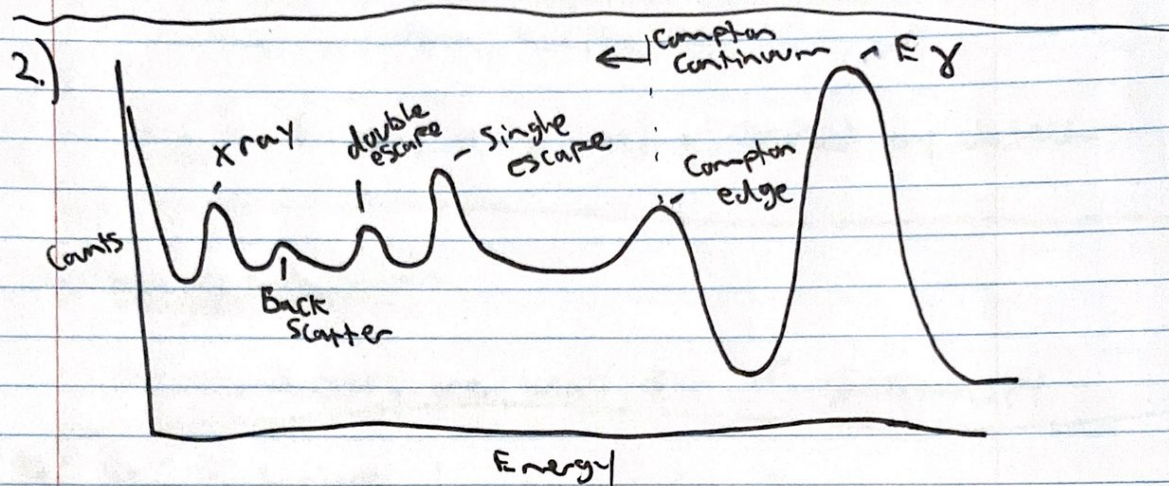 2.)
Compton
Continuum
Eγ
x ray
double
escape
single
escape
Compton
edge
Counts
Back
Scatter
Energy